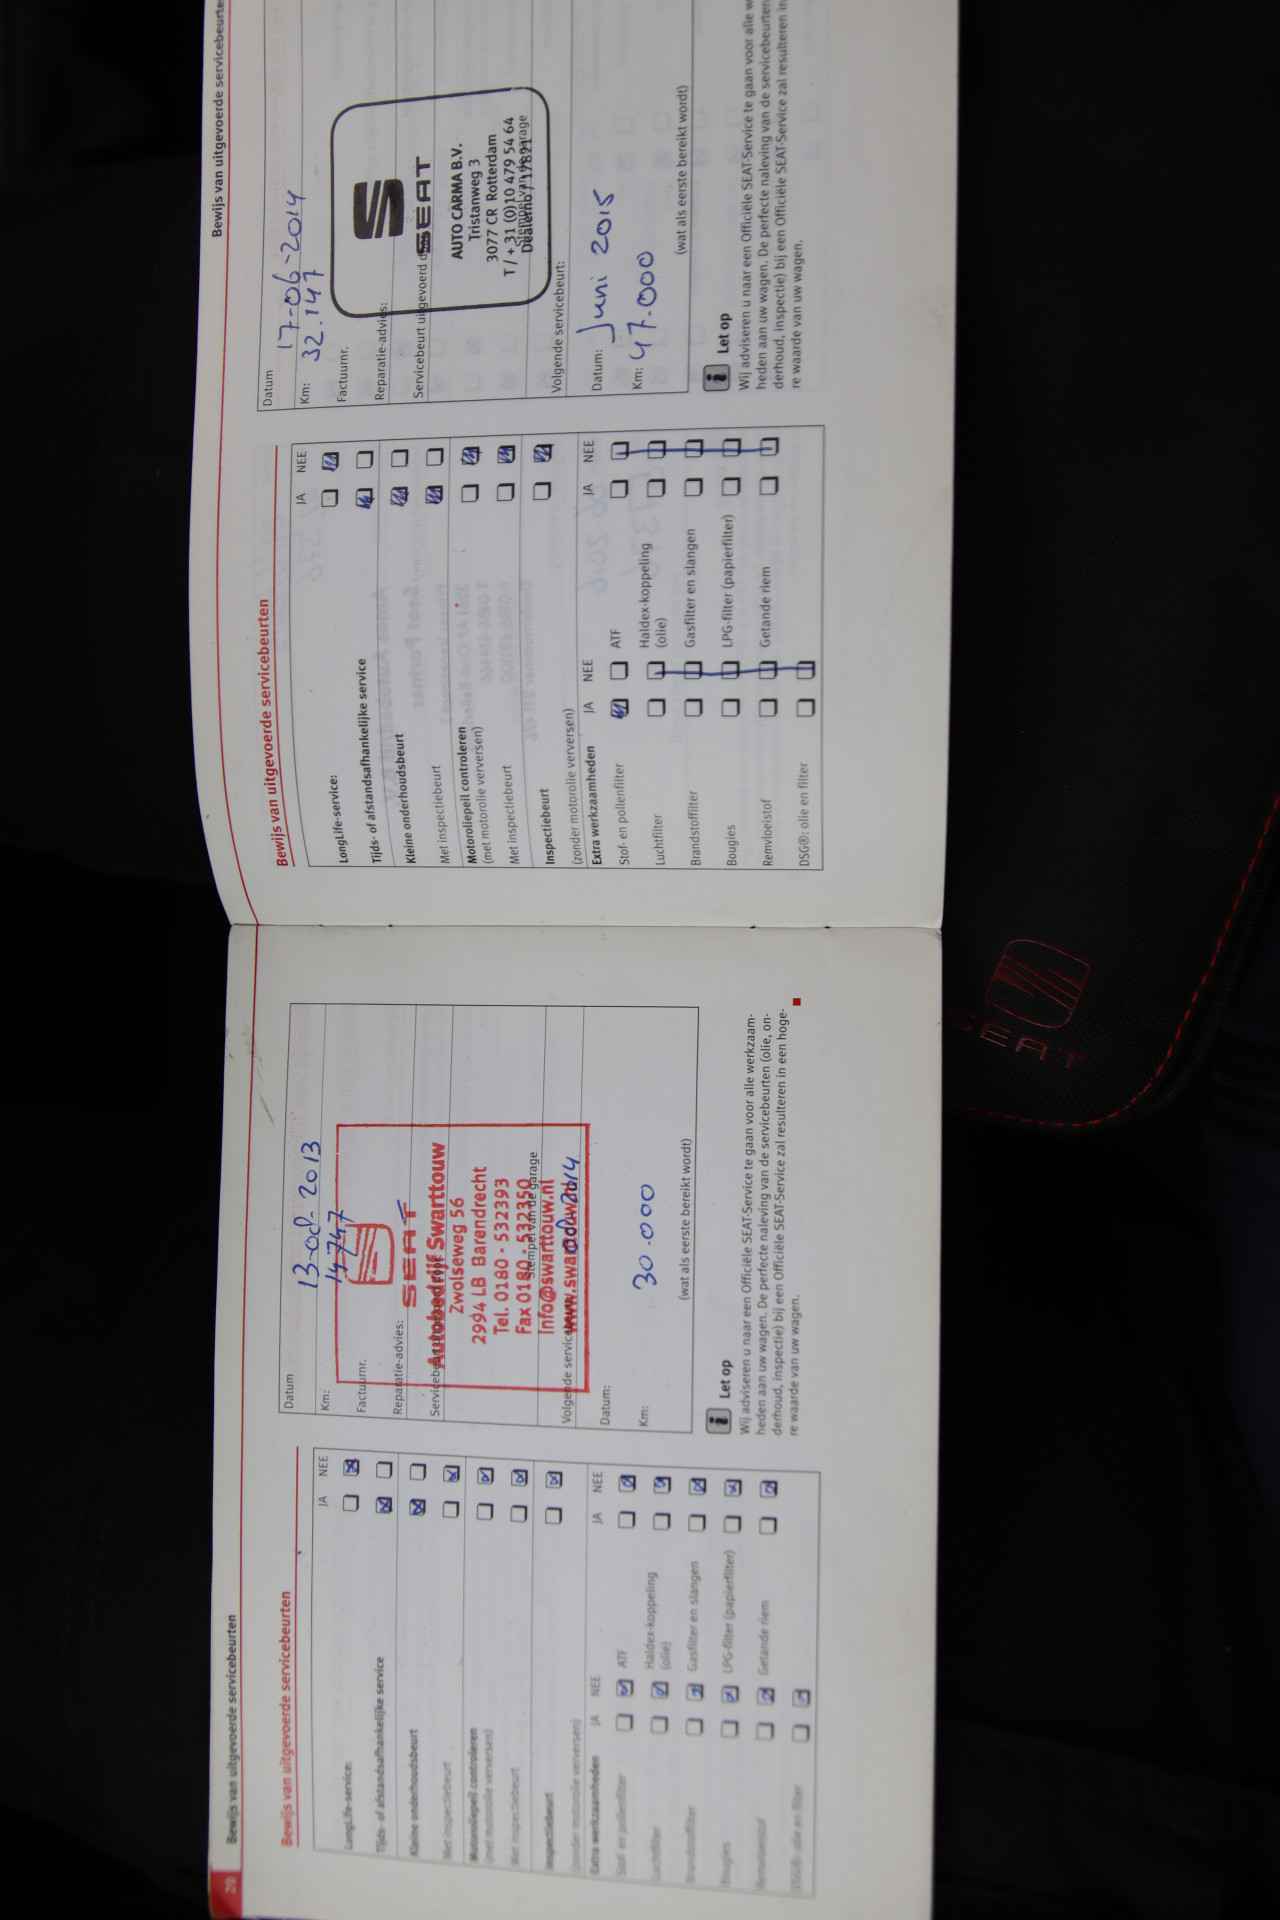 28
Bewijs van uitgevoerde servicebeurten
Bewijs van uitgevoerde servicebeurten
JA NEE
LongLife-service:
Tijds- of afstandsafhankelijke service
Kleine onderhoudsbeurt
Met inspectiebeurt
Motoroliepeil controleren
(met motorolie verversen)
Met inspectiebeurt
Inspectiebeurt
(zonder motorolie verversen)
Extra werkzaamheden JA NEE JA NEE
Stof- en pollenfilter ATF
Luchtfilter Haldex-koppeling
(olie)
Brandstoffilter Gasfilter en slangen
Bougies LPG-filter (papierfilter)
Remvloeistof Getande riem
DSG®: olie en filter
Datum 13-08-2013
Km: 14747
Factuurnr.
Reparatie-advies:
SEAT
Autobedrijf Swarttouw
Zwolseweg 56
2994 LB Barendrecht
Tel. 0180 - 532393
Fax 0180 - 532350
Stempel van de garage
Info@swarttouw.nl
www.swarttouw.nl
Datum: 2014
Km: 30.000
(wat als eerste bereikt wordt)
Let op
Wij adviseren u naar een Officiële SEAT-Service te gaan voor alle werkzaam-
heden aan uw wagen. De perfecte naleving van de servicebeurten (olie, on-
derhoud, inspectie) bij een Officiële SEAT-Service zal resulteren in een hoge-
re waarde van uw wagen.
SEAT
Bewijs van uitgevoerde servicebeurten
Bewijs van uitgevoerde servicebeurten
JA NEE
LongLife-service:
Tijds- of afstandsafhankelijke service
Kleine onderhoudsbeurt
Met inspectiebeurt
Motoroliepeil controleren
(met motorolie verversen)
Met inspectiebeurt
Inspectiebeurt
(zonder motorolie verversen)
Extra werkzaamheden JA NEE JA NEE
Stof- en pollenfilter ATF
Luchtfilter Haldex-koppeling
(olie)
Brandstoffilter Gasfilter en slangen
Bougies LPG-filter (papierfilter)
Remvloeistof Getande riem
DSG®: olie en filter
Datum 17-06-2014
Km: 32.147
Factuurnr.
Reparatie-advies:
Servicebeurt uitgevoerd
SEAT
AUTO CARMA B.V.
Tristanweg 3
3077 CR Rotterdam
T / + 31 (0)10 479 54 64
Stempel van de garage
Dealerno / 17821
Volgende servicebeurt:
Datum: Juni 2015
Km: 47.000
(wat als eerste bereikt wordt)
Let op
Wij adviseren u naar een Officiële SEAT-Service te gaan voor alle
heden aan uw wagen. De perfecte naleving van de servicebeurten
derhoud, inspectie) bij een Officiële SEAT-Service zal resulteren in
re waarde van uw wagen.